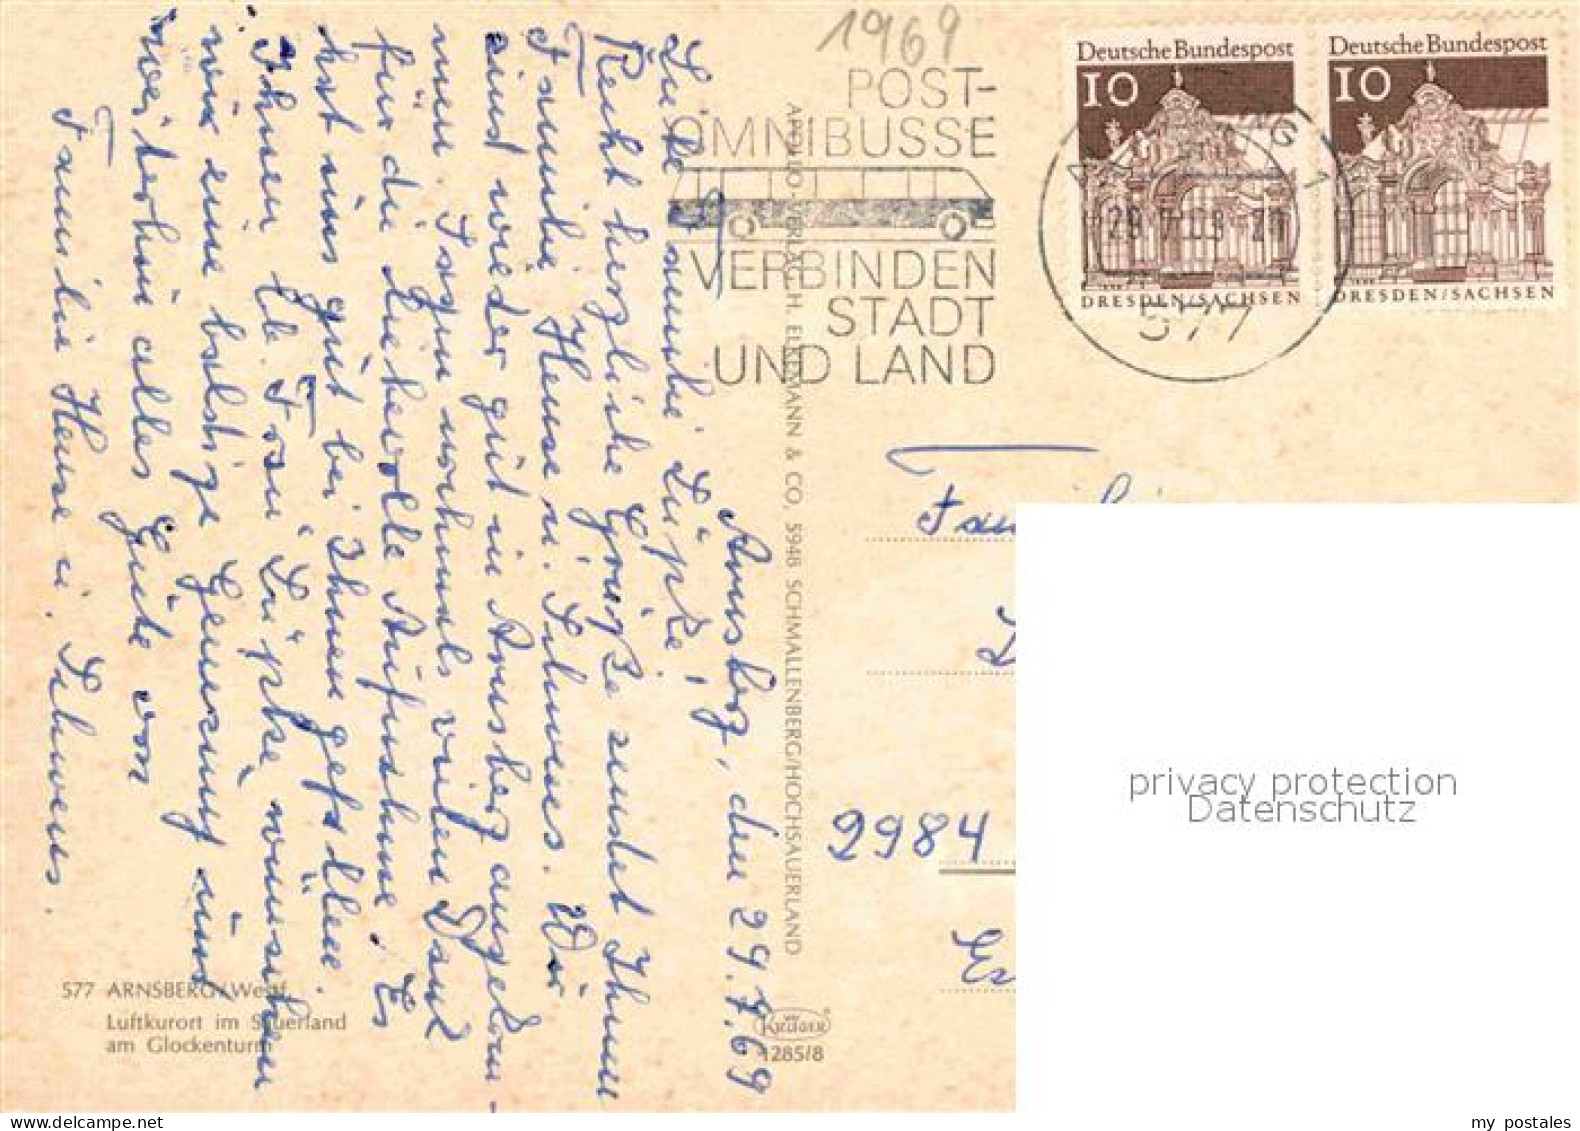 1969
POST-
OMNIBUSSE
VERBINDEN
STADT
UND LAND
Deutsche Bundespost
10
DRESDEN/SACHSEN
Deutsche Bundespost
10
DRESDEN/SACHSEN
577
Arnsberg, den 29.7.69
Liebe Familie Lüpke!
Recht herzliche Grüße sendet Ihnen
Familie Hense u. Schwens. Wir
sind wieder gut in Arnsberg angekom-
men. Sagen nochmals vielen Dank
für die liebevolle Aufnahme. Es
hat uns gut bei Ihnen gefallen.
Ihnen lb. Frau Lüpke wünschen
wir eine baldige Genesung und
weiterhin alles Gute von
Familie Hense u. Schwens.
APOLLO-VERLAG H. & CO, 5948 SCHMALLENBERG/HOCHSAUERLAND
2984
577 ARNSBERG/Westf.
Luftkurort im Sauerland
am Glockenturm
KRÜGER
1285/8
privacy protection
Datenschutz
my postales
delcampe.net